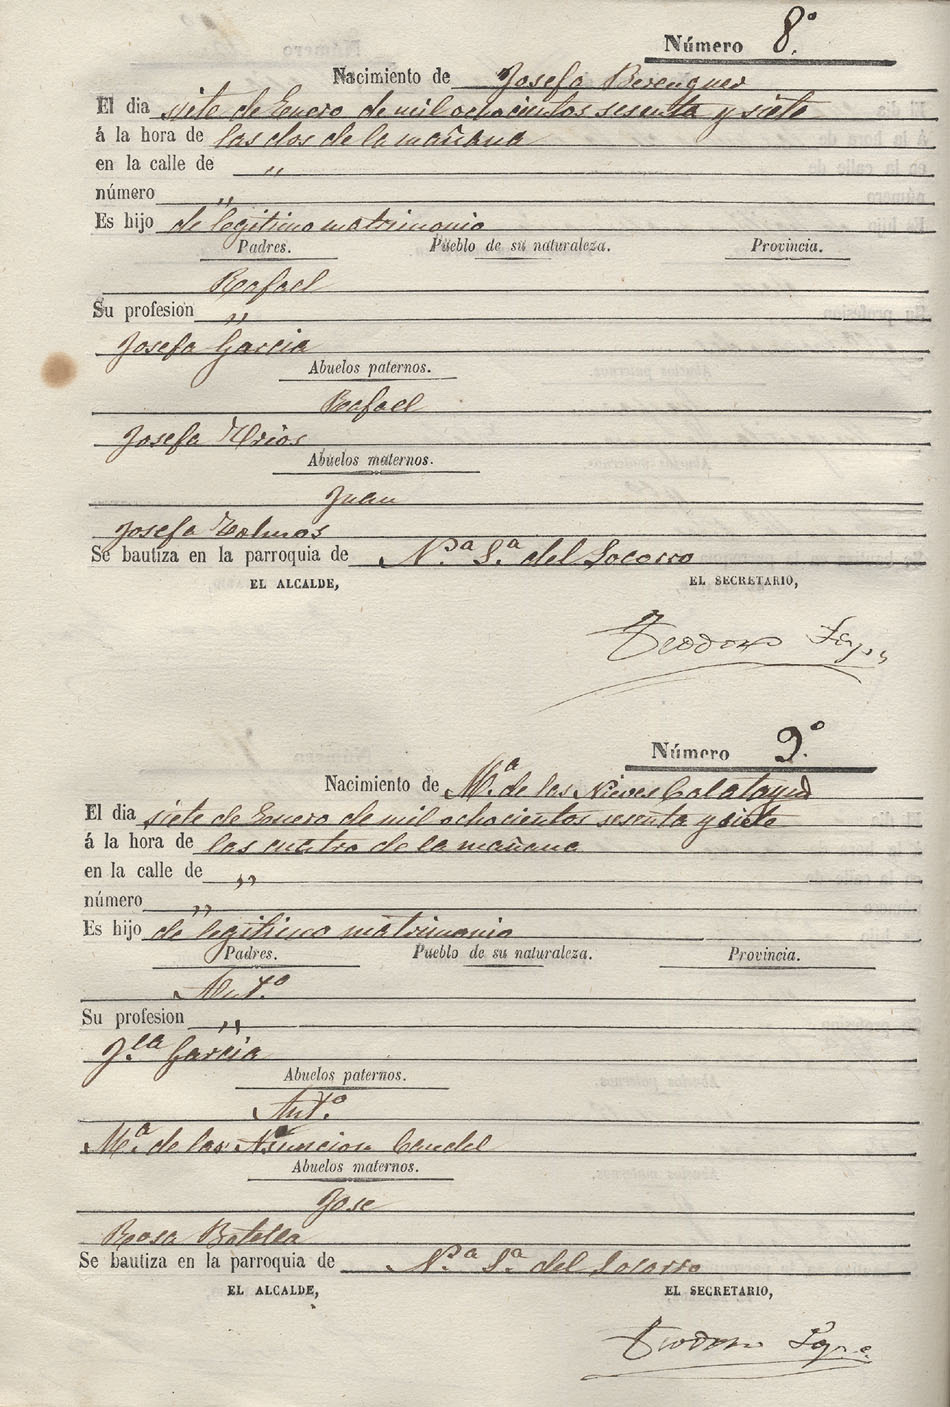 Número 8º
Nacimiento de Josefa Berenguer
El dia siete de Enero de mil ochocientos sesenta y siete
á la hora de las dos de la mañana
en la calle de "
número "
Es hijo de legitimo matrimonio
Padres. Pueblo de su naturaleza. Provincia.
Rafael
Su profesion "
Josefa Garcia
Abuelos paternos.
Rafael
Josefa
Abuelos maternos.
Juan
Josefa
Se bautiza en la parroquia de N.ª S.ª del Socorro
EL ALCALDE, EL SECRETARIO,
Teodoro
Número 9º
Nacimiento de M.ª de las Nieves Calatayud
El dia siete de Enero de mil ochocientos sesenta y siete
á la hora de las cuatro de la mañana
en la calle de "
número "
Es hijo de legitimo matrimonio
Padres. Pueblo de su naturaleza. Provincia.
Ant.º
Su profesion "
J.fa Garcia
Abuelos paternos.
Ant.º
M.ª de las Candel
Abuelos maternos.
Jose
Rosa Botella
Se bautiza en la parroquia de N.ª S.ª del Socorro
EL ALCALDE, EL SECRETARIO,
Teodoro